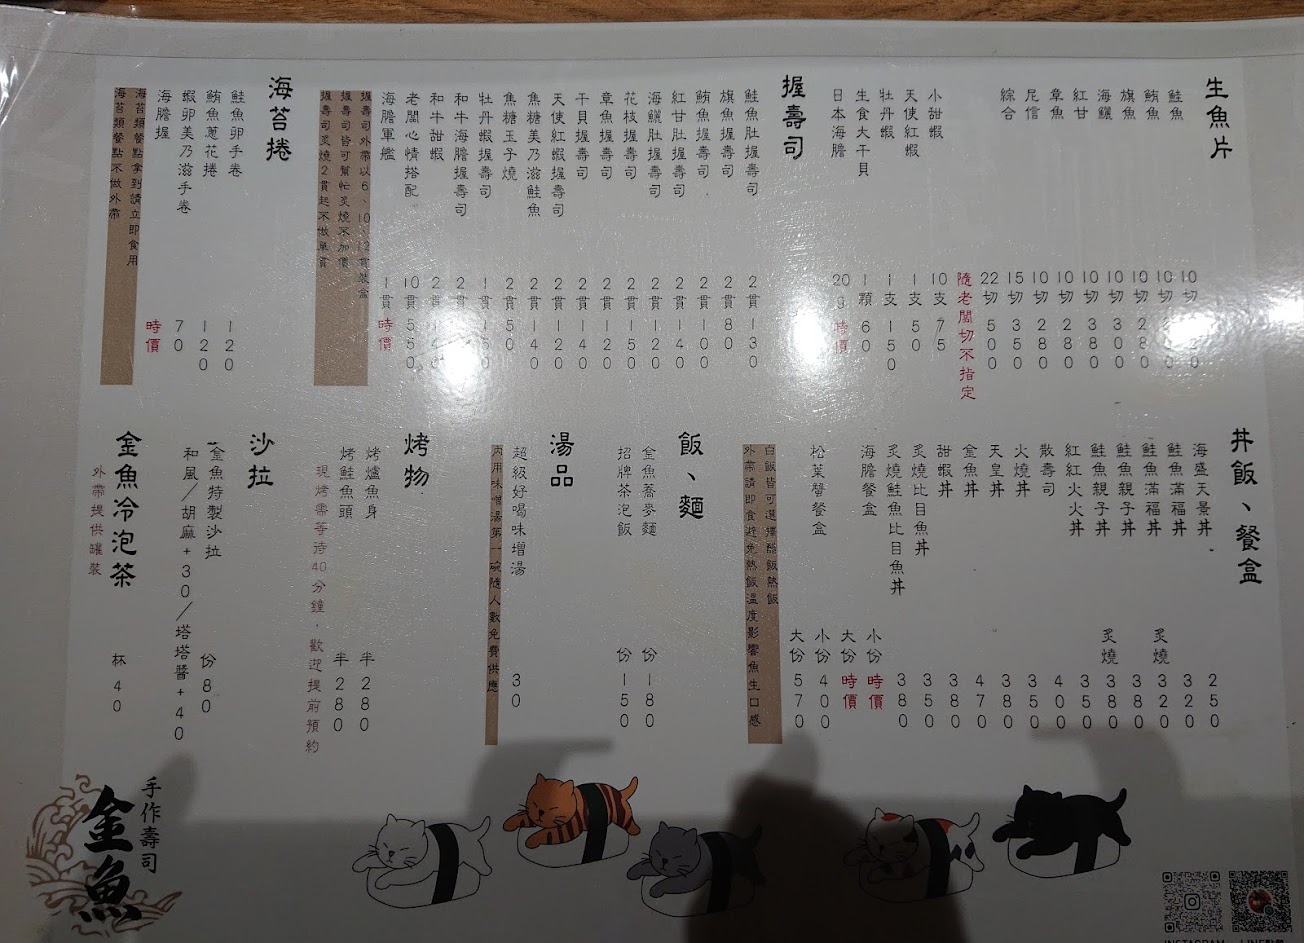 生魚片
鮭魚 10切
鮪魚 10切
旗魚 10切
海鱺 10切 380
紅甘 10切 380
章魚 10切 280
尼信 10切 280
綜合 15切 350
22切 500
隨老闆切不指定
小甜蝦 10支 75
天使紅蝦 1支 50
牡丹蝦 1支 150
生食大干貝 1顆 60
日本海膽 20g 時價
握壽司
鮭魚肚握壽司 2貫 130
旗魚握壽司 2貫 80
鮪魚握壽司 2貫 100
紅甘肚握壽司 2貫 140
海鱺肚握壽司 2貫 120
花枝握壽司 2貫 150
章魚握壽司 2貫 120
干貝握壽司 2貫 140
天使紅蝦握壽司 2貫 140
焦糖美乃滋鮭魚 2貫 140
焦糖玉子燒 2貫 50
牡丹蝦握壽司 1貫 150
和牛海膽握壽司 2貫
和牛甜蝦 2貫 140
老闆心情搭配 10貫 550
海膽軍艦 1貫 時價
握壽司外帶以6、10、12貫裝盒
握壽司皆可幫忙炙燒不加價
握壽司炙燒2貫起不做單貫
海苔捲
鮭魚卵手卷 120
鮪魚蔥花捲 120
蝦卵美乃滋手卷 70
海膽握 時價
海苔類餐點拿到請立即食用
海苔類餐點不做外帶
丼飯、餐盒
海盛天景丼 250
鮭魚滿福丼 320
鮭魚滿福丼 炙燒 320
鮭魚親子丼 380
鮭魚親子丼 炙燒 380
紅紅火火丼 350
散壽司 400
火燒丼 350
天皇丼 380
金魚丼 470
甜蝦丼 380
炙燒比目魚丼 350
炙燒鮭魚比目魚丼 380
海膽餐盒 小份 時價
大份 時價
松葉蟹餐盒 小份 400
大份 570
白飯皆可選擇醋飯熱飯
外帶請即食避免熱飯溫度影響魚生口感
飯、麵
金魚蕎麥麵 份 180
招牌茶泡飯 份 150
湯品
超級好喝味增湯 30
內用味噌湯第一碗隨人數免費供應
烤物
烤爐魚身 半 280
烤鮭魚頭 半 280
現烤需等待40分鐘，歡迎提前預約
沙拉
金魚特製沙拉 份 80
和風／胡麻+30／塔塔醬+40
金魚冷泡茶 杯 40
外帶提供罐裝
手作壽司
金魚